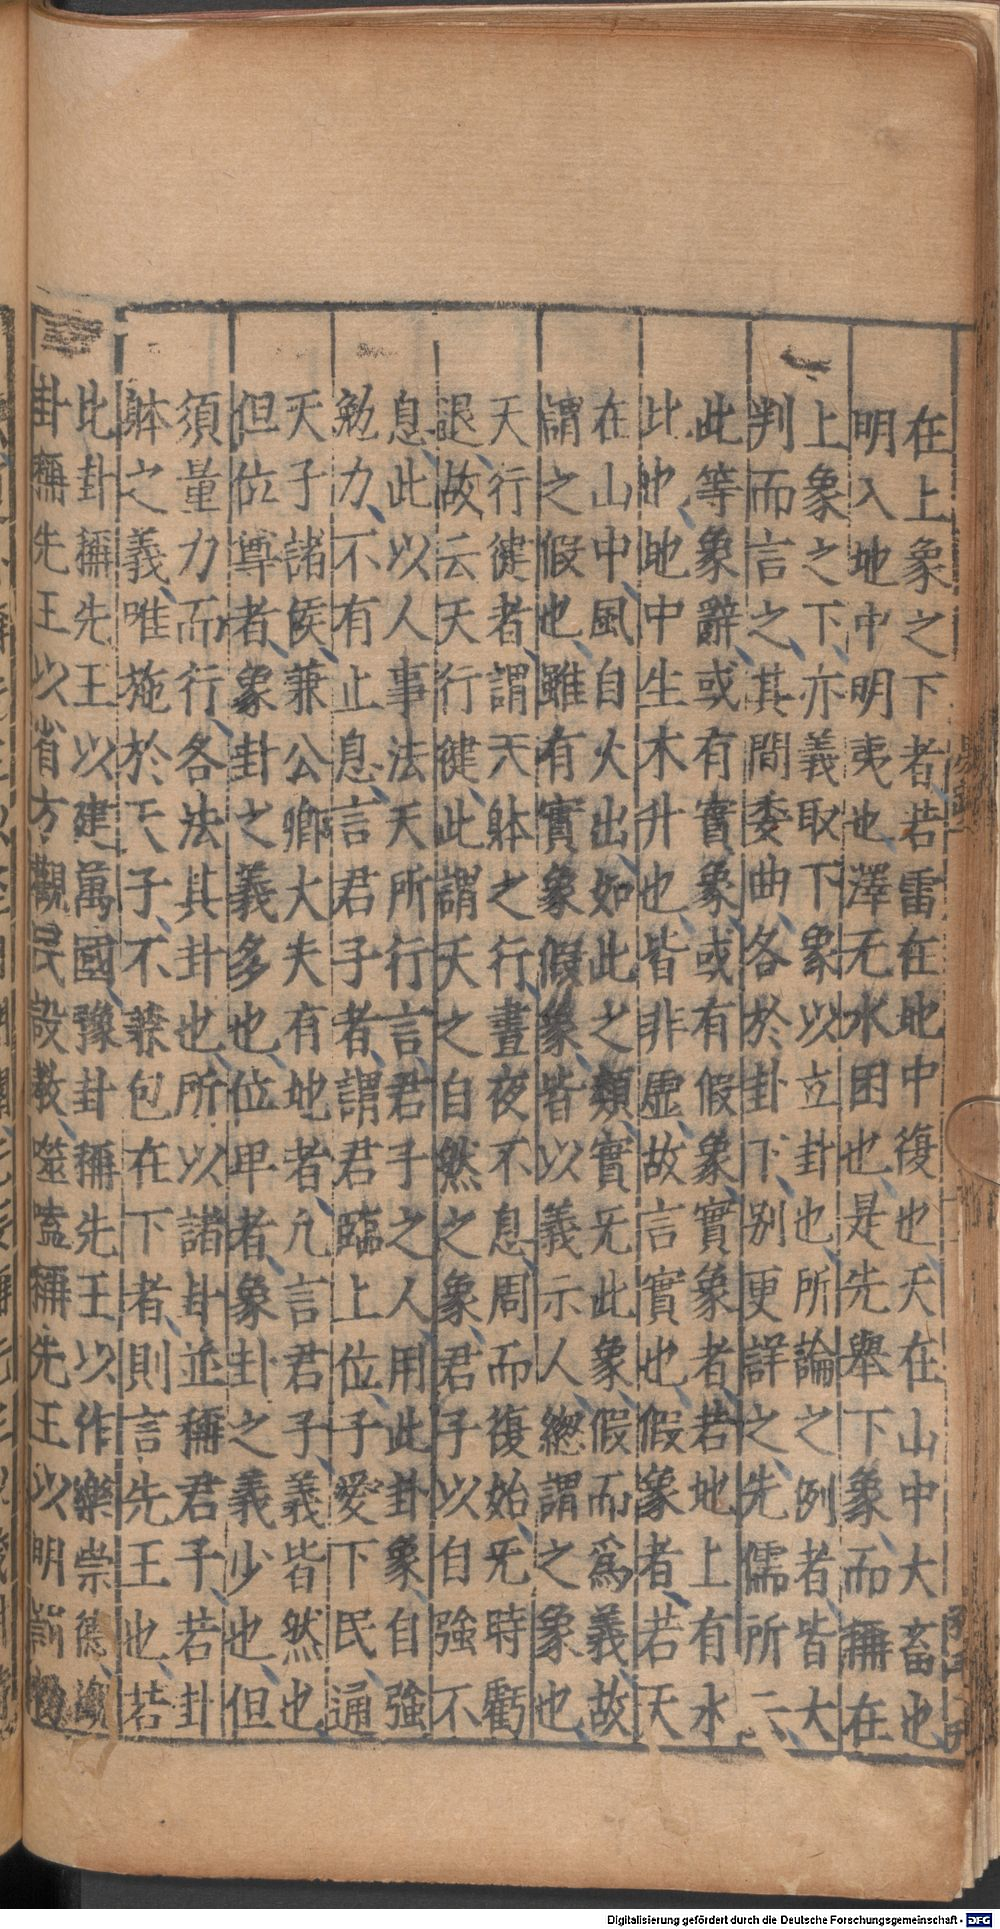 在上象之下者若雷在地中復也天在山中大畜也
明入地中明夷也澤无水困也是先舉下象而稱在
上象之下亦義取下象以立卦也所論之例者皆大
判而言之其間委曲各於卦下别更詳之先儒所云
此等象辭或有實象或有假象實象者若地上有水
比也地中生木升也皆非虚故言實也假象者若天
在山中風自火出如此之類實旡此象假而爲義故
謂之假也雖有實象假象皆以義示人緫謂之象也
天行健者謂天躰之行晝夜不息周而復始旡時虧
退故云天行健此謂天之自然之象君子以自強不
息此以人事法天所行言君子之人用此卦象自強
勉力不有止息言君子者謂君臨上位子愛下民通
天子諸侯兼公卿大夫有地者凢言君子義皆然也
但位尊者象卦之義多也位卑者象卦之義少也但
須量力而行各法其卦也所以諸卦並稱君子若卦
躰之義唯施於天子不兼包在下者則言先王也若
比卦稱先王以建萬國豫卦稱先王以作樂崇德渙
卦稱先王以省方觀民設教噬嗑稱先王以明罰勑
Digitalisierung gefördert durch die Deutsche Forschungsgemeinschaft - DFG